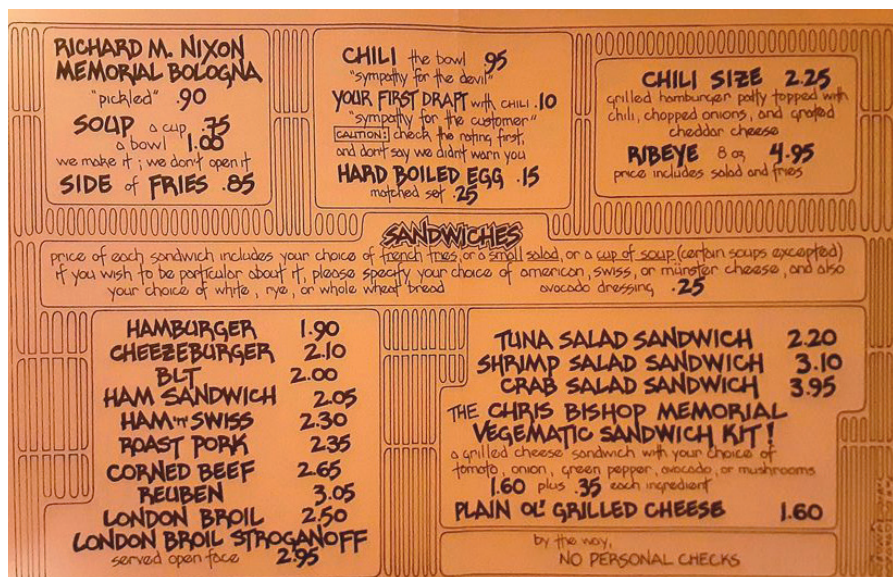 RICHARD M. NIXON
MEMORIAL BOLOGNA
"pickled" .90
SOUP a cup .75
a bowl 1.00
we make it; we don't open it
SIDE of FRIES .85
CHILI the bowl .95
"sympathy for the devil"
YOUR FIRST DRAFT with CHILI .10
"sympathy for the customer"
CAUTION: check the rating first,
and dont say we didnt warn you
HARD BOILED EGG .15
matched set .25
CHILI SIZE 2.25
grilled hamburger patty topped with
chili, chopped onions, and grated
cheddar cheese
RIBEYE 8 oz 4.95
price includes salad and fries
SANDWICHES
price of each sandwich includes your choice of french fries, or a small salad, or a cup of soup (certain soups excepted)
if you wish to be particular about it, please specify your choice of american, swiss, or münster cheese, and also
your choice of white, rye, or whole wheat bread avocado dressing .25
HAMBURGER 1.90
CHEEZEBURGER 2.10
BLT 2.00
HAM SANDWICH 2.05
HAM 'n' SWISS 2.30
ROAST PORK 2.35
CORNED BEEF 2.65
REUBEN 3.05
LONDON BROIL 2.50
LONDON BROIL STROGANOFF
served open face 2.95
TUNA SALAD SANDWICH 2.20
SHRIMP SALAD SANDWICH 3.10
CRAB SALAD SANDWICH 3.95
THE CHRIS BISHOP MEMORIAL
VEGEMATIC SANDWICH KIT!
a grilled cheese sandwich with your choice of
tomato, onion, green pepper, avocado, or mushrooms
1.60 plus .35 each ingredient
PLAIN OL' GRILLED CHEESE 1.60
by the way,
NO PERSONAL CHECKS